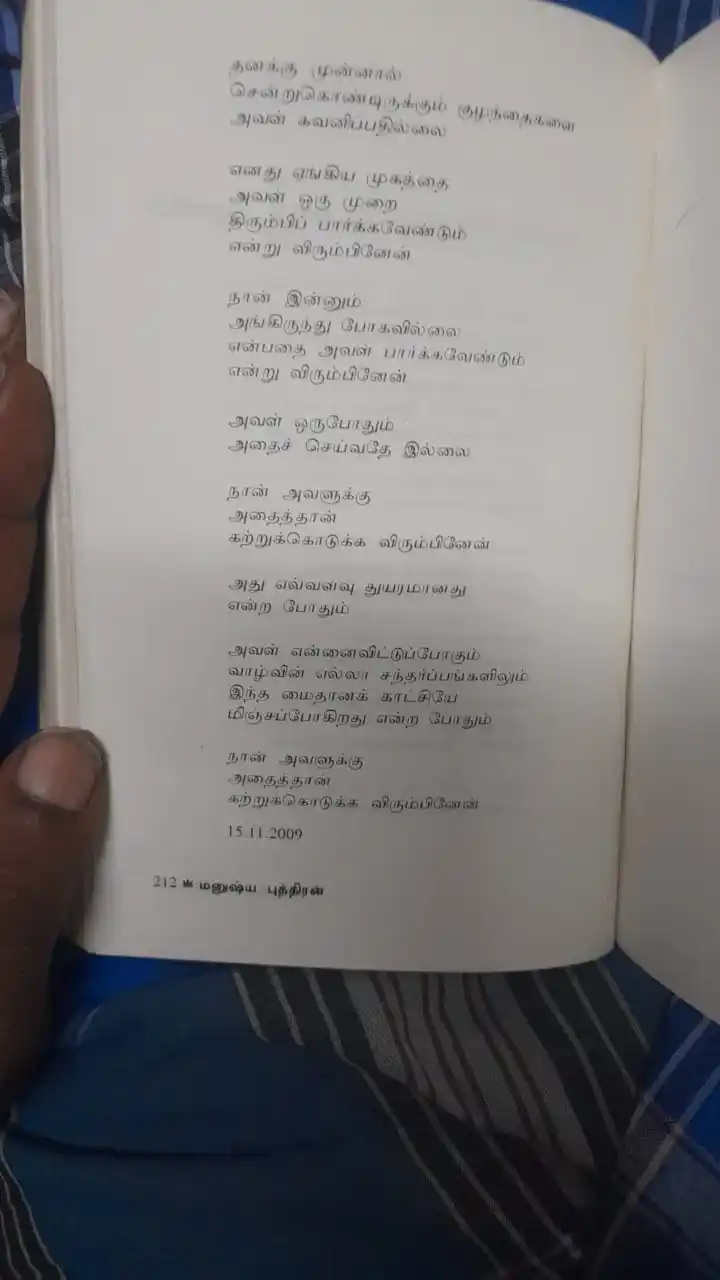 தனக்கு முன்னால்
சென்றுகொண்டிருக்கும் குழந்தைகளை
அவள் கவனிப்பதில்லை
எனது ஏங்கிய முகத்தை
அவள் ஒரு முறை
திரும்பிப் பார்க்கவேண்டும்
என்று விரும்பினேன்
நான் இன்னும்
அங்கிருந்து போகவில்லை
என்பதை அவள் பார்க்கவேண்டும்
என்று விரும்பினேன்
அவள் ஒருபோதும்
அதைச் செய்வதே இல்லை
நான் அவளுக்கு
அதைத்தான்
கற்றுக்கொடுக்க விரும்பினேன்
அது எவ்வளவு துயரமானது
என்ற போதும்
அவள் என்னைவிட்டுப்போகும்
வாழ்வின் எல்லா சந்தர்ப்பங்களிலும்
இந்த மைதானக் காட்சியே
மிஞ்சப்போகிறது என்ற போதும்
நான் அவளுக்கு
அதைத்தான்
கற்றுக்கொடுக்க விரும்பினேன்
15.11.2009
212 ♛ மனுஷ்ய புத்திரன்